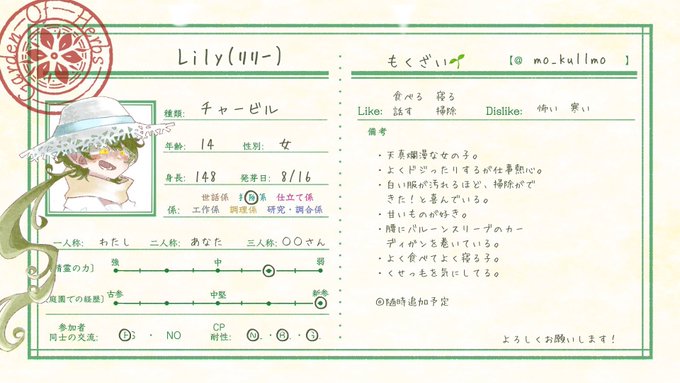 Garden-Of-Herbs
Lily(リリー)
種類: チャービル
年齢: 14 性別: 女
身長: 148 発芽日: 8/16
世話係 掃除係 仕立て係
係: 工作係 調理係 研究・調合係
一人称: わたし 二人称: あなた 三人称: 〇〇さん
[精霊の力] 強 中 弱
[庭園での経歴] 古参 中堅 新参
参加者 同士の交流: ・ NO
CP 耐性: ・ ・
もくざい🌱 【@ mo_kullmo 】
食べる 寝る
Like: 話す 掃除 Dislike: 怖い 寒い
備考
・天真爛漫な女の子。
・よくドジったりするが仕事熱心。
・白い服が汚れるほど、掃除がで
きた!と喜んでいる。
・甘いものが好き。
・腰にバルーンスリーブのカー
ディガンを巻いている。
・よく食べてよく寝る子。
・くせっ毛を気にしてる。
◎随時追加予定
よろしくお願いします!